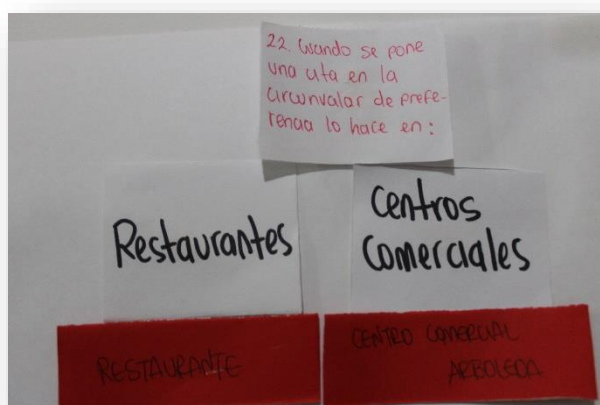 22. Cuando se pone
una cita en la
circunvalar de prefe-
rencia lo hace en:
Restaurantes
Centros
Comerciales
RESTAURANTE
CENTRO COMERCIAL
ARBOLEDA